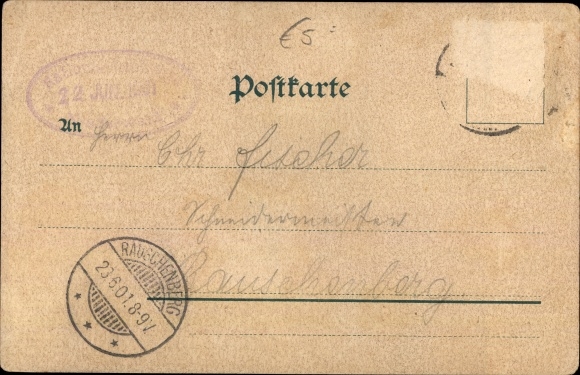 €5.-
22 JUN.
Postkarte
An Herrn Chr Fischer
Schneidermeister
Rauschenberg
RAUSCHENBERG
23.6.01.8-9V.